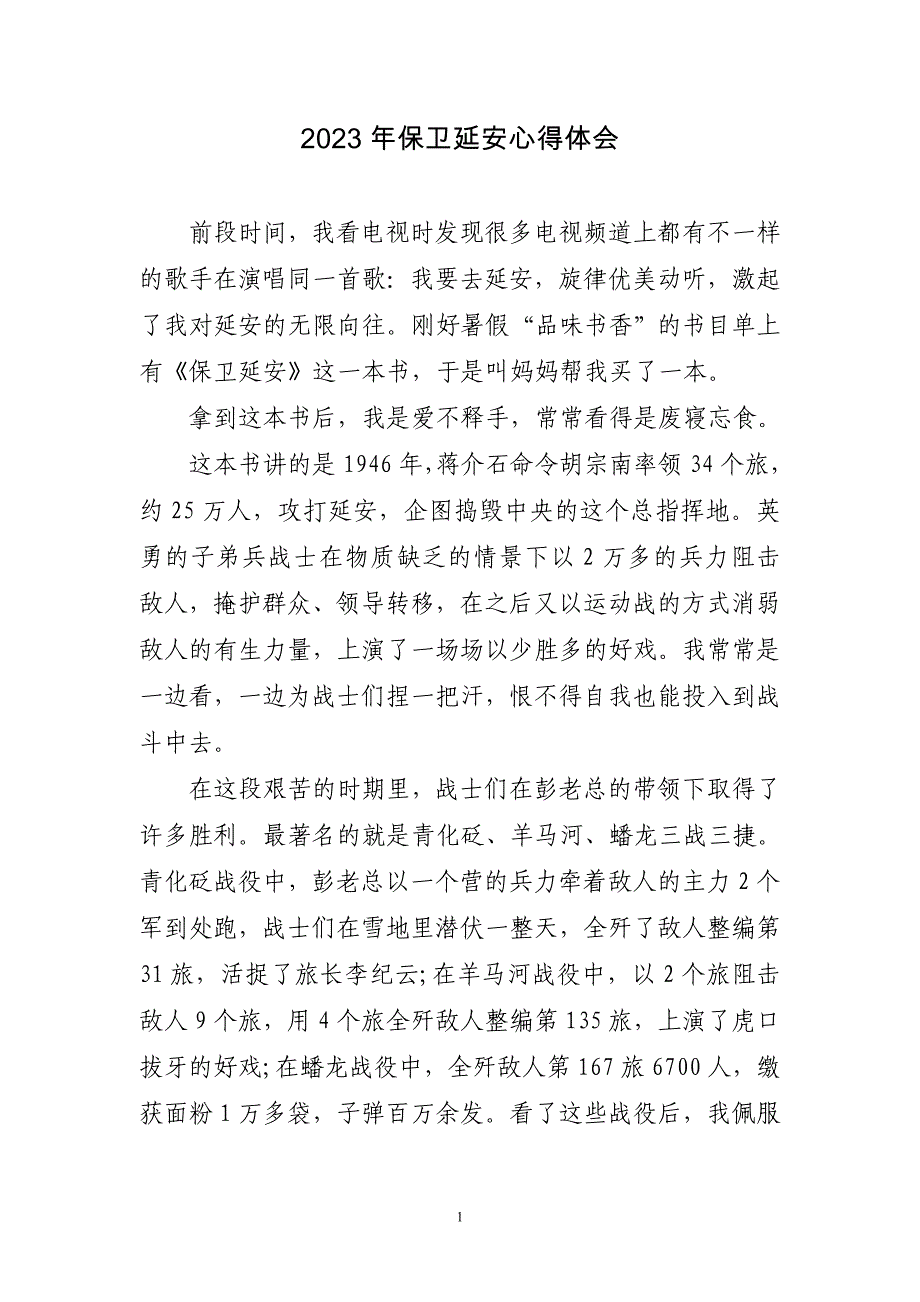 2023 年保卫延安心得体会
前段时间，我看电视时发现很多电视频道上都有不一样
的歌手在演唱同一首歌：我要去延安，旋律优美动听，激起
了我对延安的无限向往。刚好暑假“品味书香”的书目单上
有《保卫延安》这一本书，于是叫妈妈帮我买了一本。
拿到这本书后，我是爱不释手，常常看得是废寝忘食。
这本书讲的是 1946 年，蒋介石命令胡宗南率领 34 个旅，
约 25 万人，攻打延安，企图捣毁中央的这个总指挥地。英
勇的子弟兵战士在物质缺乏的情景下以 2 万多的兵力阻击
敌人，掩护群众、领导转移，在之后又以运动战的方式消弱
敌人的有生力量，上演了一场场以少胜多的好戏。我常常是
一边看，一边为战士们捏一把汗，恨不得自我也能投入到战
斗中去。
在这段艰苦的时期里，战士们在彭老总的带领下取得了
许多胜利。最著名的就是青化砭、羊马河、蟠龙三战三捷。
青化砭战役中，彭老总以一个营的兵力牵着敌人的主力 2 个
军到处跑，战士们在雪地里潜伏一整天，全歼了敌人整编第
31 旅，活捉了旅长李纪云;在羊马河战役中，以 2 个旅阻击
敌人 9 个旅，用 4 个旅全歼敌人整编第 135 旅，上演了虎口
拔牙的好戏;在蟠龙战役中，全歼敌人第 167 旅 6700 人，缴
获面粉 1 万多袋，子弹百万余发。看了这些战役后，我佩服
1